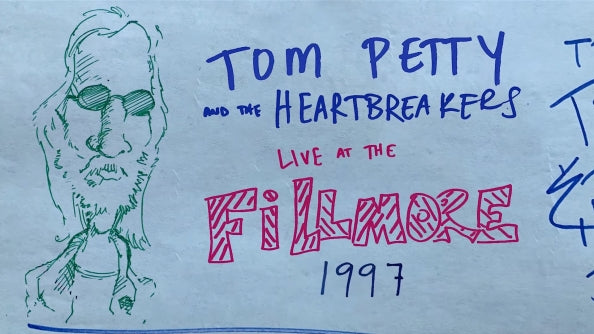 TOM PETTY
AND THE HEARTBREAKERS
LIVE AT THE
FiLLMORE
1997